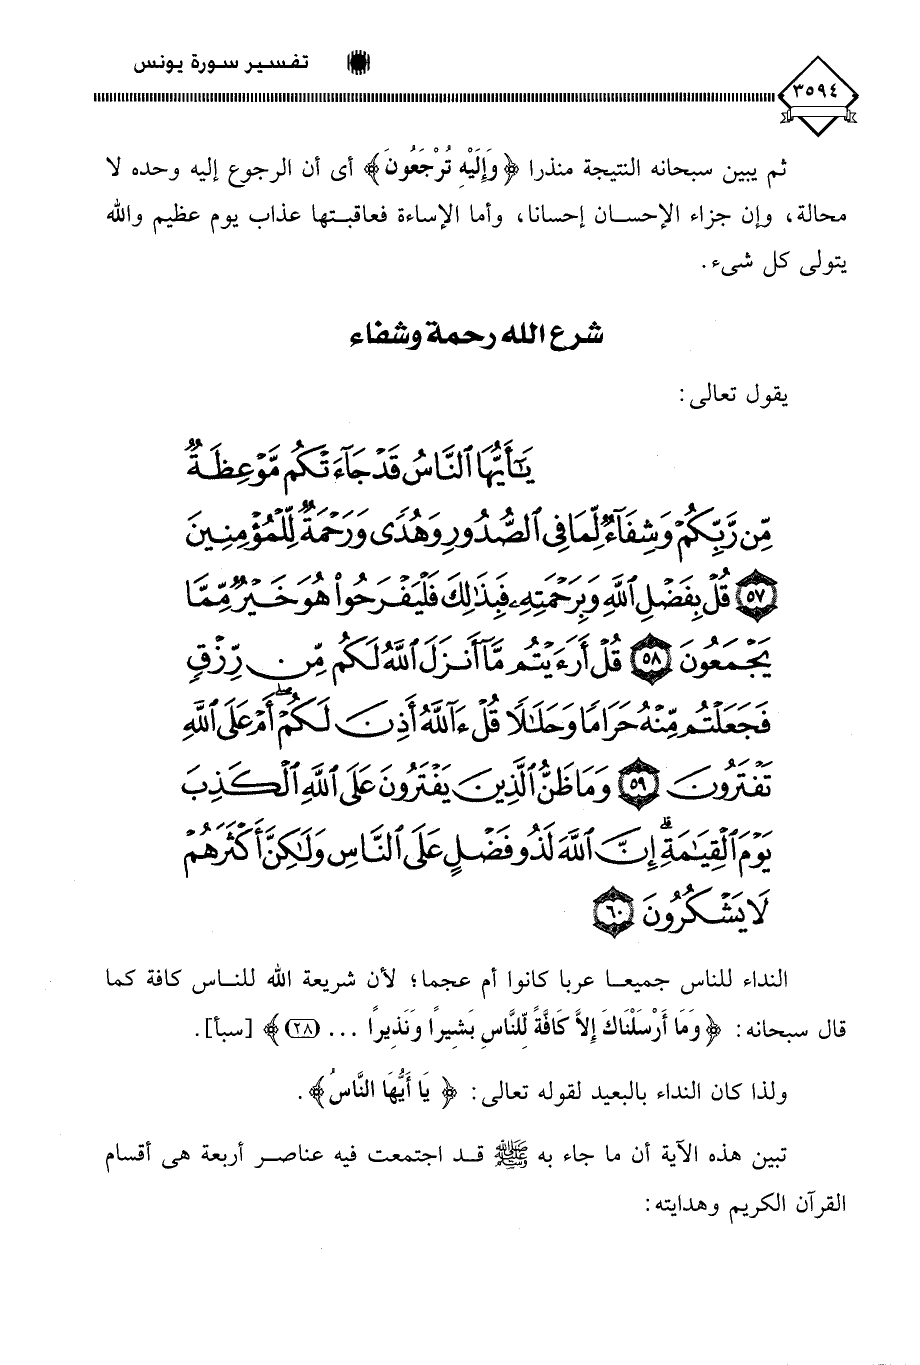 ٣٥٩٤
تفسير سورة يونس
ثم يبين سبحانه النتيجة منذرا ﴿ وَإِلَيْهِ تُرْجَعُونَ ﴾ أى أن الرجوع إليه وحده لا
محالة، وإن جزاء الإحسان إحسانا، وأما الإساءة فعاقبتها عذاب يوم عظيم والله
يتولى كل شىء.
شرع الله رحمة وشفاء
يقول تعالى:
يَٰٓأَيُّهَا ٱلنَّاسُ قَدْ جَآءَتْكُم مَّوْعِظَةٌ
مِّن رَّبِّكُمْ وَشِفَآءٌ لِّمَا فِى ٱلصُّدُورِ وَهُدًى وَرَحْمَةٌ لِّلْمُؤْمِنِينَ
٥٧ قُلْ بِفَضْلِ ٱللَّهِ وَبِرَحْمَتِهِۦ فَبِذَٰلِكَ فَلْيَفْرَحُوا۟ هُوَ خَيْرٌ مِّمَّا
يَجْمَعُونَ ٥٨ قُلْ أَرَءَيْتُم مَّآ أَنزَلَ ٱللَّهُ لَكُم مِّن رِّزْقٍ
فَجَعَلْتُم مِّنْهُ حَرَامًا وَحَلَٰلًا قُلْ ءَآللَّهُ أَذِنَ لَكُمْ ۖ أَمْ عَلَى ٱللَّهِ
تَفْتَرُونَ ٥٩ وَمَا ظَنُّ ٱلَّذِينَ يَفْتَرُونَ عَلَى ٱللَّهِ ٱلْكَذِبَ
يَوْمَ ٱلْقِيَٰمَةِ ۗ إِنَّ ٱللَّهَ لَذُو فَضْلٍ عَلَى ٱلنَّاسِ وَلَٰكِنَّ أَكْثَرَهُمْ
لَا يَشْكُرُونَ ٦٠
النداء للناس جميعا عربا كانوا أم عجما؛ لأن شريعة الله للناس كافة كما
قال سبحانه: ﴿ وَمَا أَرْسَلْنَاكَ إِلاَّ كَافَّةً لِّلنَّاسِ بَشِيرًا وَنَذِيرًا ... (٢٨) ﴾ [سبأ].
ولذا كان النداء بالبعيد لقوله تعالى: ﴿ يَا أَيُّهَا النَّاسُ ﴾.
تبين هذه الآية أن ما جاء به ﷺ قد اجتمعت فيه عناصر أربعة هى أقسام
القرآن الكريم وهدايته: